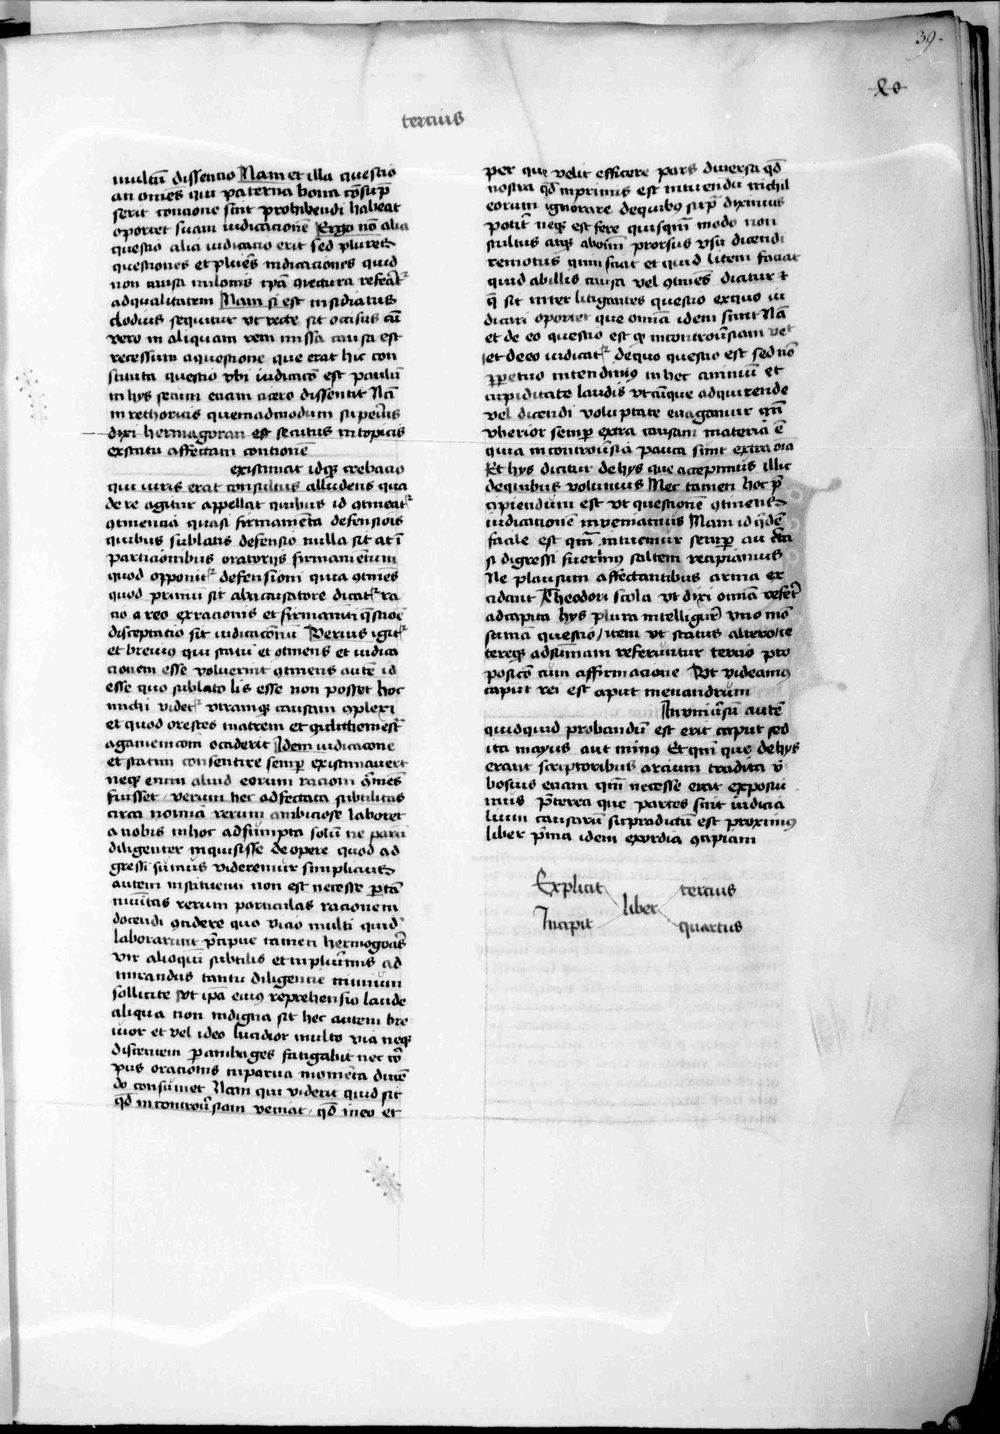 39.
tercius
multū dissentio Nam et illa questio
an omēs qui paterna bona cōsūp
serit contione sint prohibendi habeat
oportet suam iudicacionē Ergo nō alia
questio alia iudicatio erit sed plures
questiones et plures iudicaciones quid
non causa milonis ip̄a coniectura referat᷑
ad qualitatem Nam si est insidiatus
clodius sequitur vt recte sit occisus cū
vero in aliquam rem missa causa est
recessum a questione que erat hic con
stituta questio vbi iudicacō est paulū
in hys secum eciam cicero dissentit Nā
in rethoricis quemadmodum superius
dixi hermagoran est secutus in topicis
existitu affectam contionē
existimat idq; trebacio
qui iuris erat consultus alludens qua
de re agitur appellat quibus id ꝯtineat᷑
ꝯtinencia quasi firmamēta defensiōis
quibus sublatis defensio nulla sit at ī
particiōnibus oratoriis firmamentum
quod opponit᷑ defensioni quia ꝯtinēs
quod primū sit ab accusatore dicat᷑ ra
cio a reo ex racionis et firmamti q̄stiōe
disceptatio sit iudicacōnū Verius igit᷑
et breuius qui statū et ꝯtinens et iudica
cionem esse voluerunt ꝯtinens autē id
esse quo sublato lis esse non posset hoc
michi videt᷑ vtramq; causam ꝯplexi
et quod orestes matrem et
agamemnonē occiderit Idem iudicacōne
et statum consentire semper existimauert
neq; enim aliud eorum racioni
fuisset / verum hec adfectata subtilitas
circa nomiā rerum ambiciose laboret
a nobis in hoc adsumpta solū ne parū
diligenter inquisisse de opere quod ad
gressi sumus videremur simplicius
autem instituenti non est necesse p̄ tā
minutas rerum particulas racionem
docendi ꝯcidere quo vicio multi quid
laborarunt p̄cipue tamen hermogoās
vir alioqui subtilis et in plurimis ad
mirandus tantū diligencie nimium
sollicite vt ip̄a eius reprehensio laude
aliqua non indigna sit hec autem bre
uior et vel ideo lucidior multo via neq;
discentem p̄ ambages fatigabit nec cor
pus oracionis in parua momēta diducē
do consumet Nam qui viderit quid sit
qd̄ in controūsiam veniat / qd̄ in eo et
per que velit efficere pars diuersa qd̄
nostra qd̄ in primis est intuendū nichil
eorum ignorare de quibus supra diximus
poterit neq; est fere quisqm̄ modo non
stultus atq; ab om̄i prorsus vsu dicendi
remotus quin sciat et quid litem faciat
quid ab illis causa vel ꝯtinēs dicatur ⁊
q̄ sit inter litigantes questio ex quo iu
dicari oportet que omīa idem sunt Nā
et de eo questio est qd̄ in controūsiam ve
et de eo iudicat᷑ de quo questio est sed nō
ꝑpetuo intendimus in hec animū et
cupiditate laudis vtcūque adquirende
vel dicendi voluptate euagamur qm̄
vberior semper extra causam materia ē
quia in controūsia pauca sunt extra oīa
Et hys dicitur de hys que accepimus illic
de quibus volumus Nec tamen hoc p̄
cipiendum est vt questionē ꝯtinens
iudicationem inueniamus Nam id q̄dē
facile est qm̄ intueamur semper au
si digressi fuerimus saltem recipiamus
Ne plausum affectantibus arma ex
cidant Theodori scola vt dixi omīa refert
ad capita hys plura intelliguntur vno mō
suma questio / item vt status altero ce
tereq; ad sumam referuntur tercio pro
posicō cum affirmacione Vt videamus
caput rei est aput menandrum
In vniūsū autē
quidquid probandū est erit caput sed
ita mayus aut minus Et qm̄ que de hys
erant scriptoribus arcium tradita v̄
bosius eciam qm̄ necesse erat exposui
mus p̄terea que partes sint iudicia
lium causarū supradictū est proximus
liber p̄ma idem exordia ꝯcipiam
Explicit liber tercius
Incipit quartus